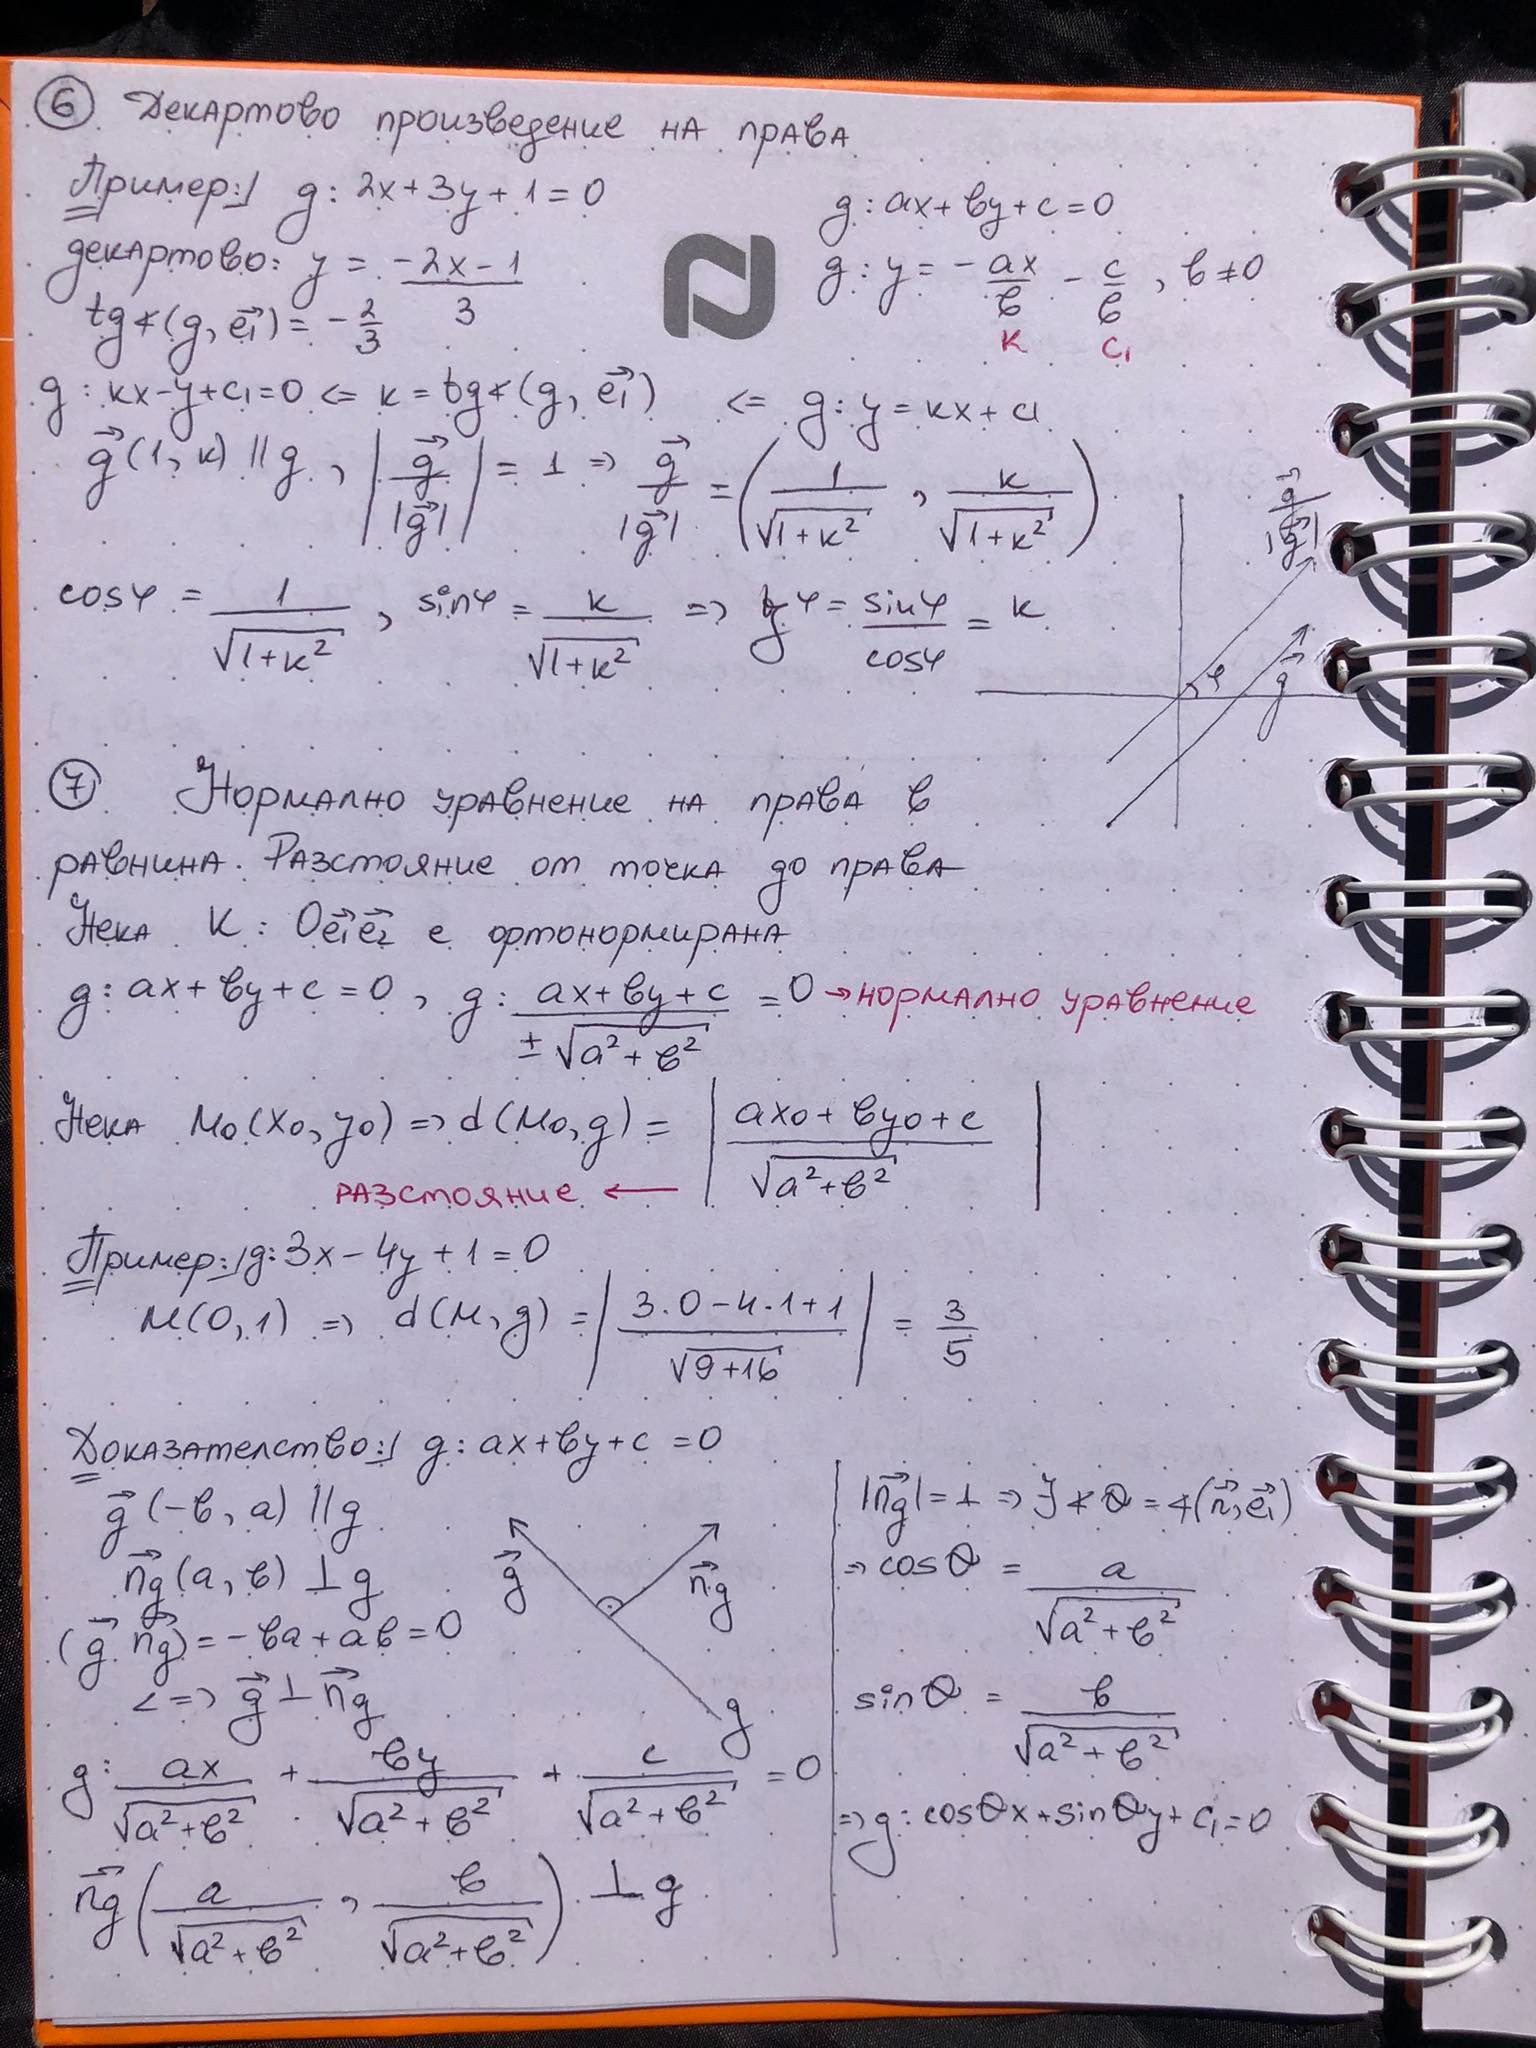 6 Декартово произведение на права
Пример:/ g: 2x+3y+1=0
g: ax+by+c=0
декартово: y = (-2x-1)/3
g: y = -ax/b - c/b, b≠0
k c₁
tg∢(g, e₁⃗) = -2/3
g: kx-y+c₁=0 <= k = tg∢(g, e₁⃗) <= g: y=kx+c₁
g⃗(1, k) || g, |g⃗/|g⃗|| = 1 => g⃗/|g⃗| = (1/√(1+k²), k/√(1+k²))
g⃗/|g⃗|
cosφ = 1/√(1+k²), sinφ = k/√(1+k²) => tgφ = sinφ/cosφ = k
φ g⃗
7 Нормално уравнение на права в
равнина. Разстояние от точка до права
Нека K: Oe₁⃗e₂⃗ е ортонормирана
g: ax+by+c=0, g: (ax+by+c)/(±√(a²+b²)) = 0 → нормално уравнение
Нека M₀(x₀, y₀) => d(M₀, g) = |(ax₀+by₀+c)/√(a²+b²)|
разстояние ←
Пример:/ g: 3x-4y+1=0
M(0,1) => d(M, g) = |(3.0-4.1+1)/√(9+16)| = 3/5
Доказателство:/ g: ax+by+c=0
g⃗(-b, a) || g
n⃗g(a, b) ⊥ g
(g⃗ n⃗g) = -ba+ab=0
<=> g⃗ ⊥ n⃗g
g⃗ n⃗g
g
g: ax/√(a²+b²) + by/√(a²+b²) + c/√(a²+b²) = 0
n⃗g(a/√(a²+b²), b/√(a²+b²)) ⊥ g
|n⃗g|=1 => ∃ ∢θ = ∢(n⃗, e₁⃗)
=> cosθ = a/√(a²+b²)
sinθ = b/√(a²+b²)
=> g: cosθx+sinθy+c₁=0